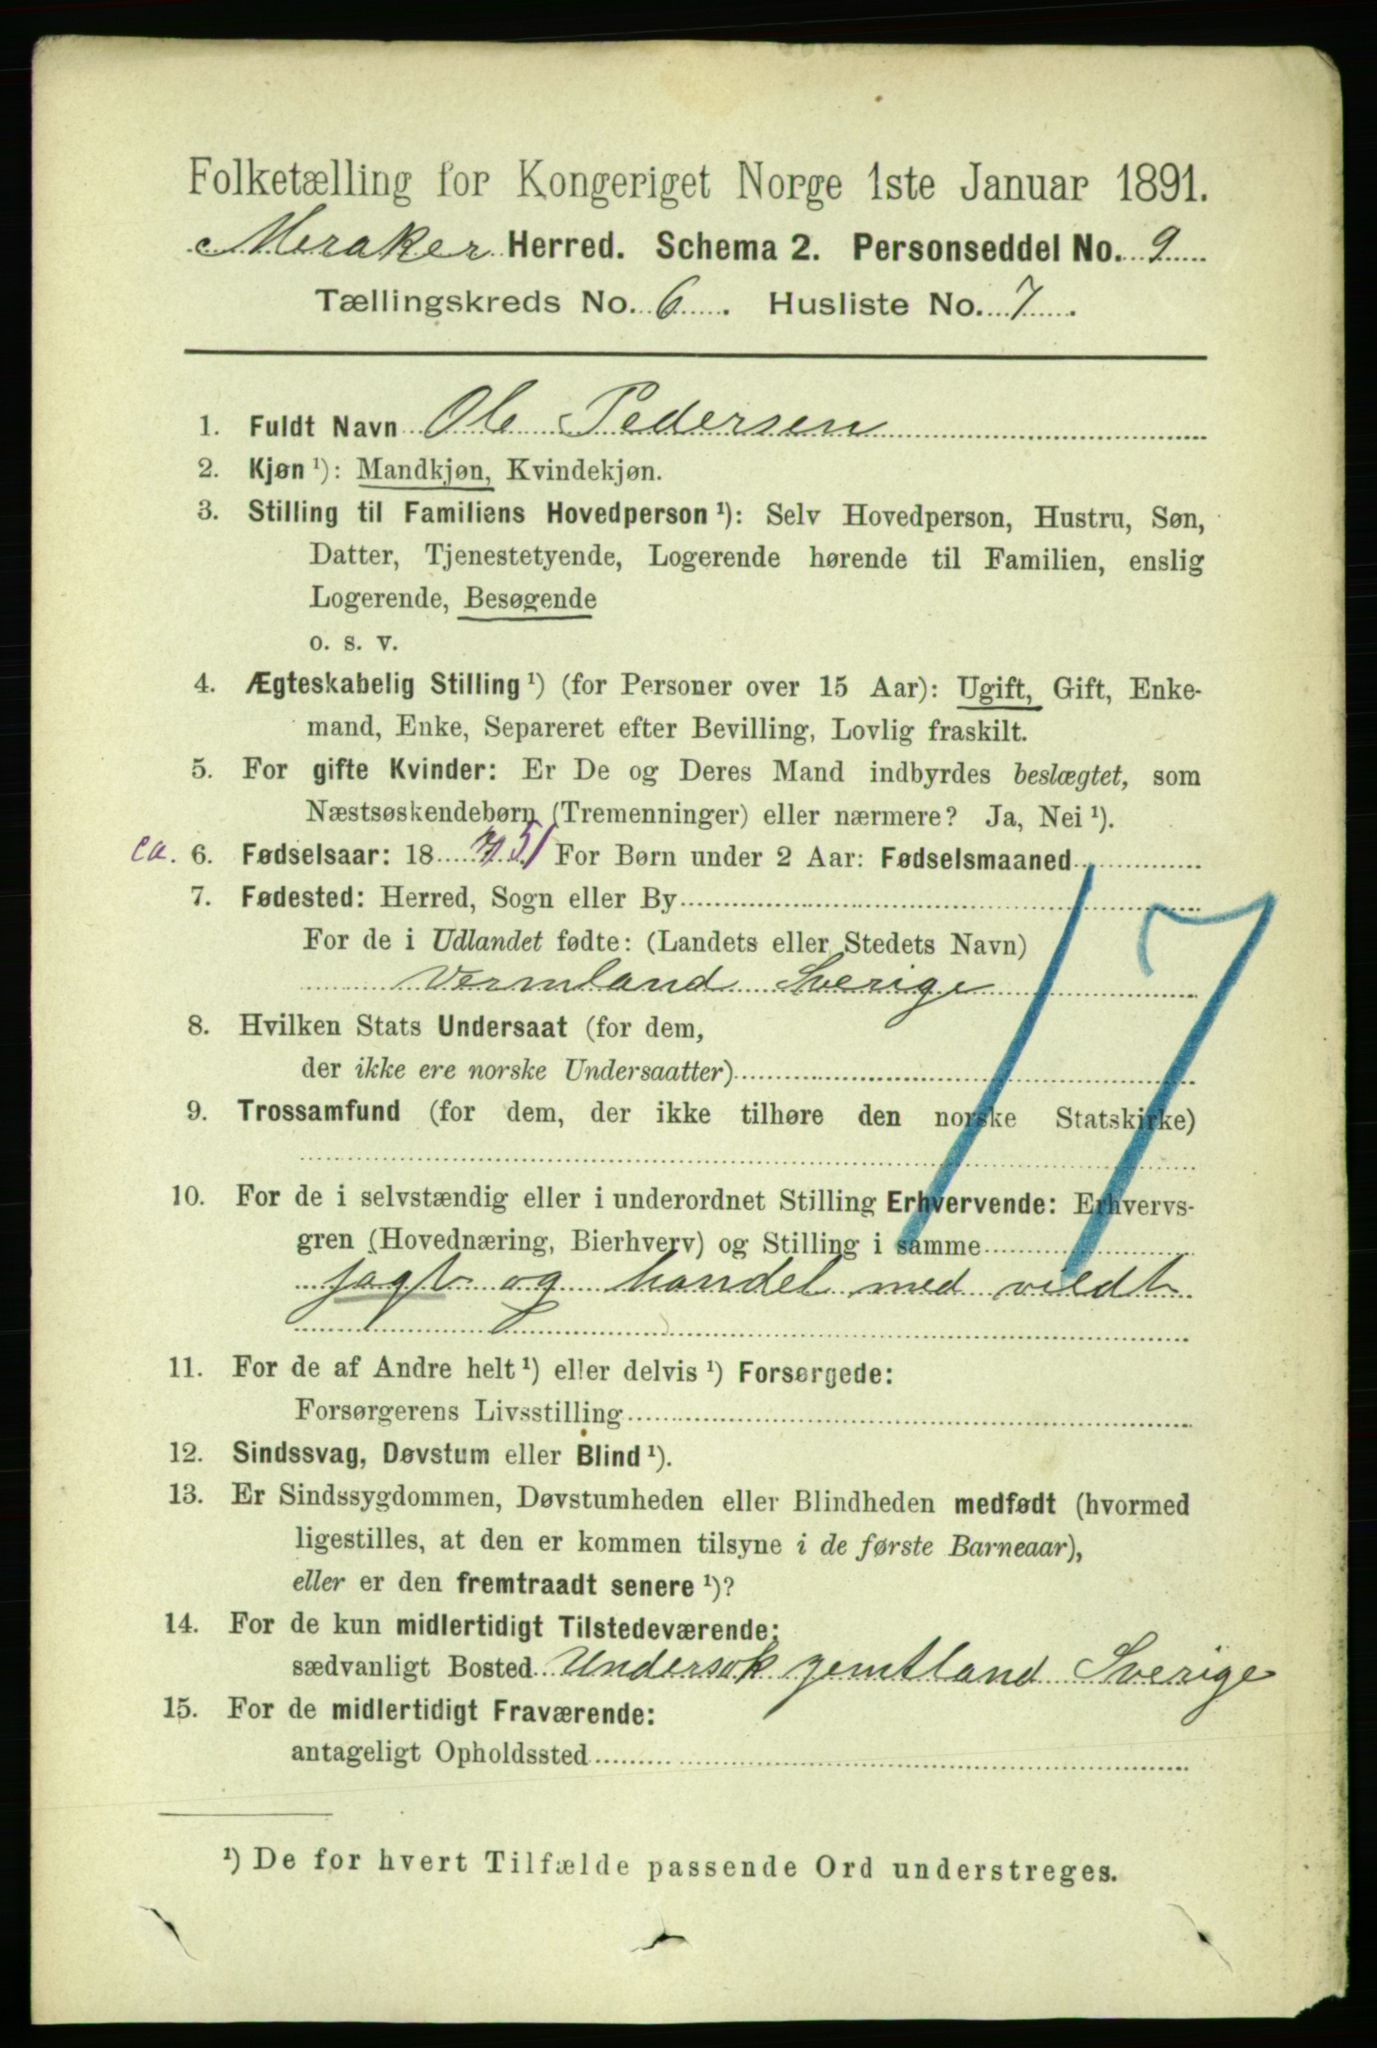 Folketælling for Kongeriget Norge 1ste Januar 1891.
Meraker Herred. Schema 2. Personseddel No. 9
Tællingskreds No. 6. Husliste No. 7.
1. Fuldt Navn Ole Pedersen
2. Kjøn ¹): Mandkjøn, Kvindekjøn.
3. Stilling til Familiens Hovedperson ¹): Selv Hovedperson, Hustru, Søn,
Datter, Tjenestetyende, Logerende hørende til Familien, enslig
Logerende, Besøgende
o. s. v.
4. Ægteskabelig Stilling ¹) (for Personer over 15 Aar): Ugift, Gift, Enke-
mand, Enke, Separeret efter Bevilling, Lovlig fraskilt.
5. For gifte Kvinder: Er De og Deres Mand indbyrdes beslægtet, som
Næstsøskendebørn (Tremenninger) eller nærmere? Ja, Nei ¹).
ca. 6. Fødselsaar: 18 51 For Børn under 2 Aar: Fødselsmaaned
7. Fødested: Herred, Sogn eller By
For de i Udlandet fødte: (Landets eller Stedets Navn)
Vermland Sverige
17
8. Hvilken Stats Undersaat (for dem,
der ikke ere norske Undersaatter)
9. Trossamfund (for dem, der ikke tilhøre den norske Statskirke)
10. For de i selvstændig eller i underordnet Stilling Erhvervende: Erhvervs-
gren (Hovednæring, Bierhverv) og Stilling i samme
jagt og handel med vildt
11. For de af Andre helt ¹) eller delvis ¹) Forsørgede:
Forsørgerens Livsstilling
12. Sindssvag, Døvstum eller Blind ¹).
13. Er Sindssygdommen, Døvstumheden eller Blindheden medfødt (hvormed
ligestilles, at den er kommen tilsyne i de første Barneaar),
eller er den fremtraadt senere ¹)?
14. For de kun midlertidigt Tilstedeværende:
sædvanligt Bosted Undersok jemtland Sverige
15. For de midlertidigt Fraværende:
antageligt Opholdssted
¹) De for hvert Tilfælde passende Ord understreges.